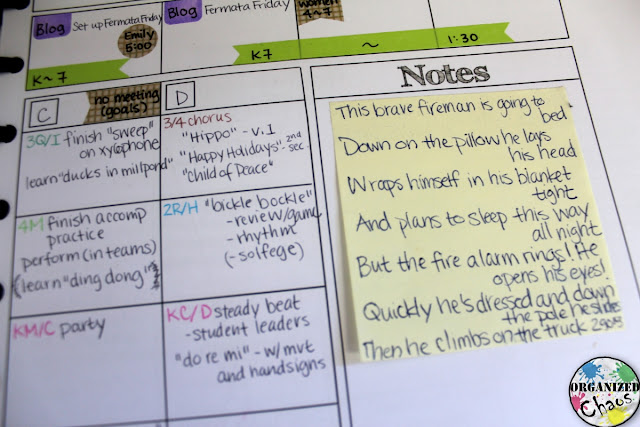 Blog Set up Fermata Friday
Emily
5:00
Blog Fermata Friday
women
4~7
K~7
K7
~
1:30
C
no meeting
(goals)
3Q/I finish "sweep"
on xylophone
learn "ducks in millpond"
4M finish accomp
practice
perform (in teams)
(learn "ding dong"
KM/C party
D
3/4 chorus
"Hippo" - v.1
"Happy Holidays" - 2nd
sec.
"Child of Peace"
2R/H "bickle bockle"
- review/game
- rhythm
(- solfege)
KC/D steady beat
- student leaders
"do re mi" - w/ mvt
and handsigns
Notes
This brave fireman is going to
bed
Down on the pillow he lays
his head
Wraps himself in his blanket
tight
And plans to sleep this way
all night
But the fire alarm rings! He
opens his eyes!
Quickly he's dressed and down
the pole he slides
Then he climbs on the truck
ORGANIZED
Chaos